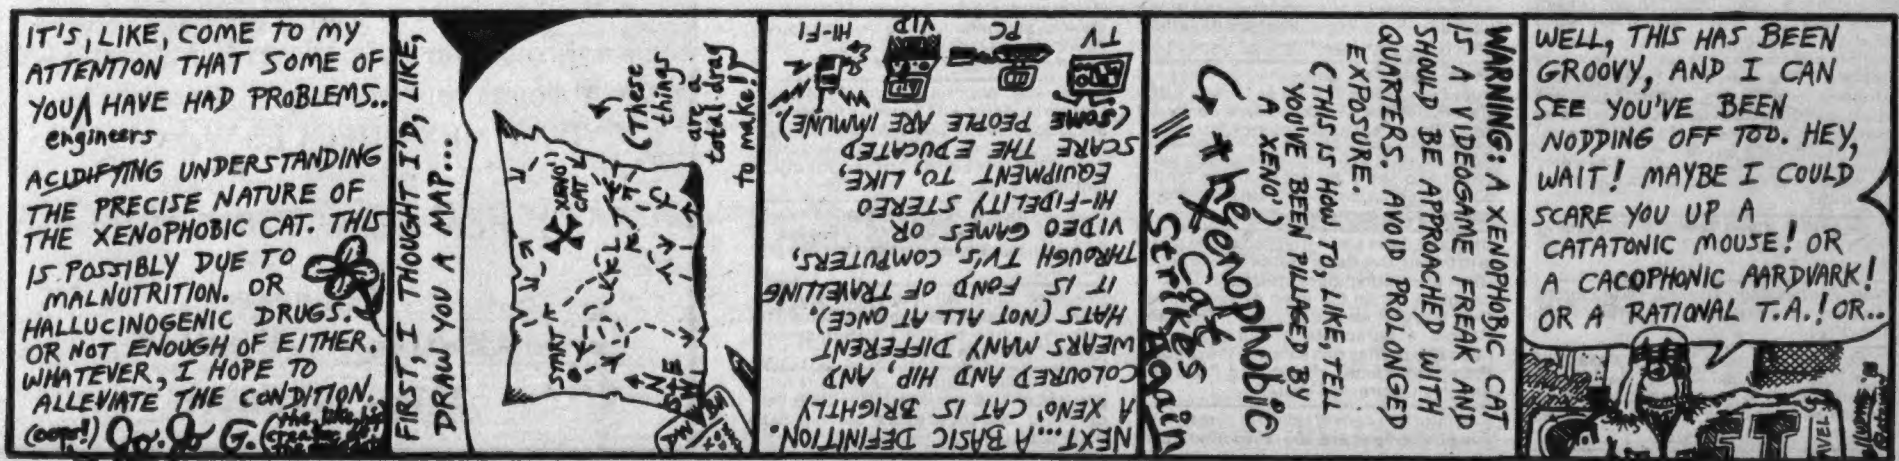 IT'S, LIKE, COME TO MY
ATTENTION THAT SOME OF
YOU ∧ HAVE HAD PROBLEMS..
engineers
ACIDIFYING UNDERSTANDING
THE PRECISE NATURE OF
THE XENOPHOBIC CAT. THIS
IS POSSIBLY DUE TO
MALNUTRITION. OR
HALLUCINOGENIC DRUGS.
OR NOT ENOUGH OF EITHER.
WHATEVER, I HOPE TO
ALLEVIATE THE CONDITION.
(oop!)
FIRST, I THOUGHT I'D, LIKE,
DRAW YOU A MAP...
(These
things
are a
total drag
to make!)
XENO'
CAT
START IT
N
S
E
W
NEXT... A BASIC DEFINITION.
A XENO' CAT IS BRIGHTLY
COLOURED AND HIP, AND
WEARS MANY DIFFERENT
HATS (NOT ALL AT ONCE).
IT IS FOND OF TRAVELLING
THROUGH TV'S, COMPUTERS,
VIDEO GAMES OR
HI-FIDELITY STEREO
EQUIPMENT TO, LIKE,
SCARE THE EDUCATED
(SOME PEOPLE ARE IMMUNE).
TV
PC
VID
HI-FI
WARNING: A XENOPHOBIC CAT
IS A VIDEOGAME FREAK AND
SHOULD BE APPROACHED WITH
QUARTERS. AVOID PROLONGED
EXPOSURE.
(THIS IS HOW TO, LIKE, TELL
YOU'VE BEEN PILLAGED BY
A XENO')
the Xenophobic
Cat
Strikes
Again
WELL, THIS HAS BEEN
GROOVY, AND I CAN
SEE YOU'VE BEEN
NODDING OFF TOO. HEY,
WAIT! MAYBE I COULD
SCARE YOU UP A
CATATONIC MOUSE! OR
A CACOPHONIC AARDVARK!
OR A RATIONAL T.A.! OR..